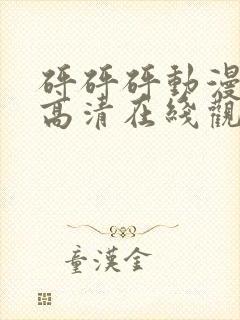 砰砰砰動漫
高清在綫觀
童漢金